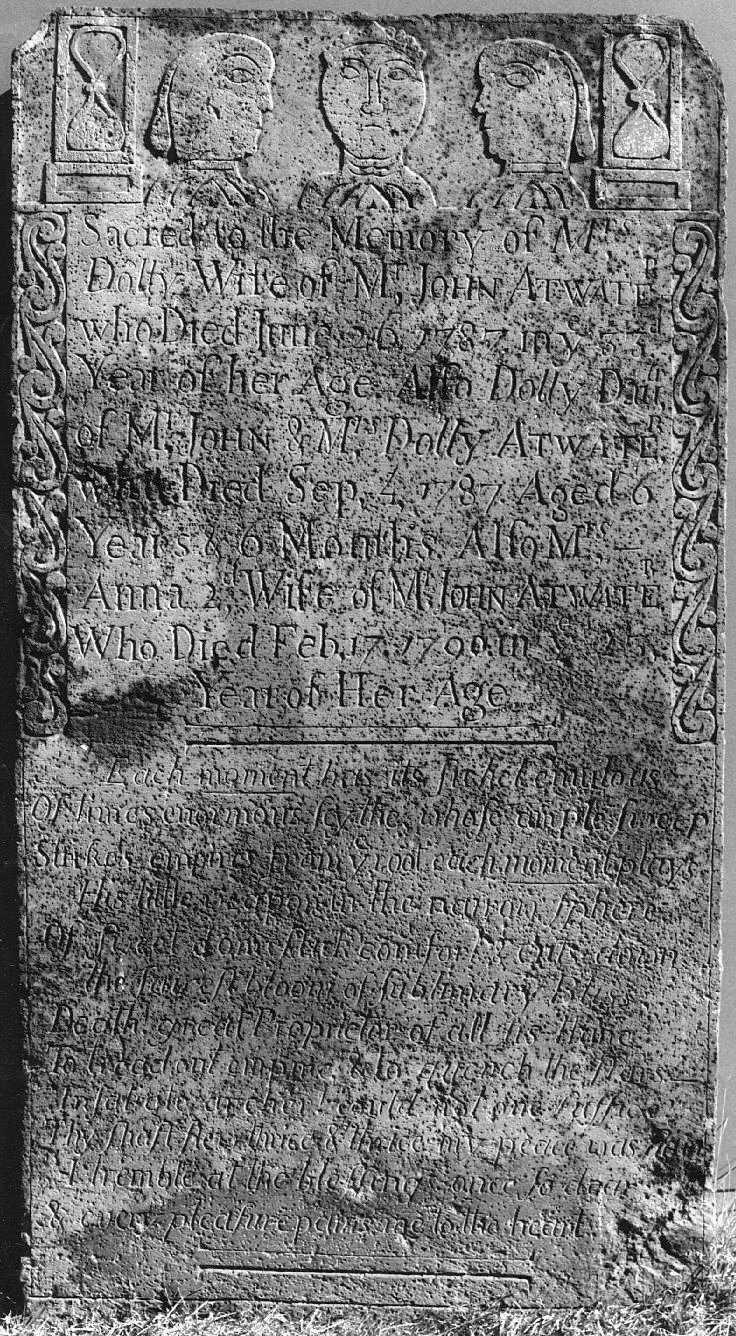 Sacred to the Memory of Mrs
Dolly Wife of Mr, JOHN ATWATER
who Died June 26, 1787 in ye 33d
Year of her Age Alſo Dolly Daut,
of Mr, JOHN & Mrs, Dolly ATWATER
who Died Sep, 4, 1787 Aged 6
Years & 6 Months. Alſo Mrs, –
Anna 2d, Wife of Mr, JOHN ATWATER
Who Died Feb, 17, 1790 in ye 25,
Year of Her Age
Each moment has its ſickel emulous
Of times enormous ſcythe, whoſe ample ſweep
Strikes empires from ye root each moment plays
His little weapon in the narrow ſphere
Of ſweet domeſtick comfort & cuts down
the faireſt bloom of ſublunary Bliſs
Death! great Proprietor of all tis thine
To tread out empire & to quench the Stars
Inſatiate archer! could not one ſuffice
Thy ſhaft flew thrice & thrice my peace was
I tremble at the bleſſings once ſo dear
& every pleaſure pains me to the heart